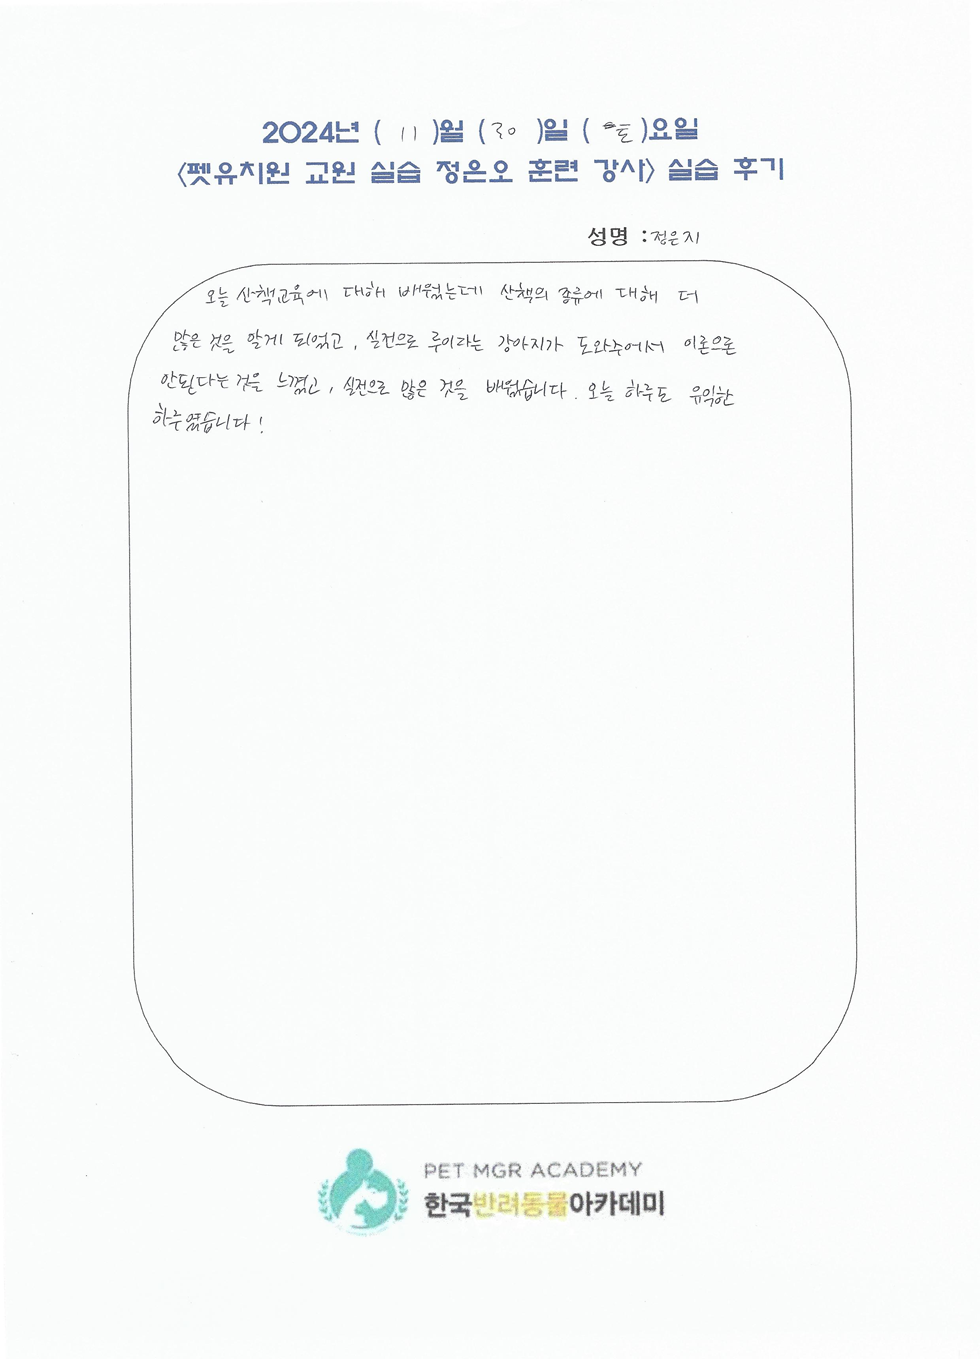 2024년 ( 11 )월 (30 )일 ( 토 )요일
<펫유치원 교원 실습 정은오 훈련 강사> 실습 후기
성명 : 정은지
오늘 산책교육에 대해 배웠는데 산책의 종류에 대해 더
많은 것을 알게 되었고, 실전으로 루이라는 강아지가 도와주어서 이론으론
안된다는 것을 느꼈고, 실전으로 많은 것을 배웠습니다. 오늘 하루도 유익한
하루였습니다!
PET MGR ACADEMY
한국반려동물아카데미